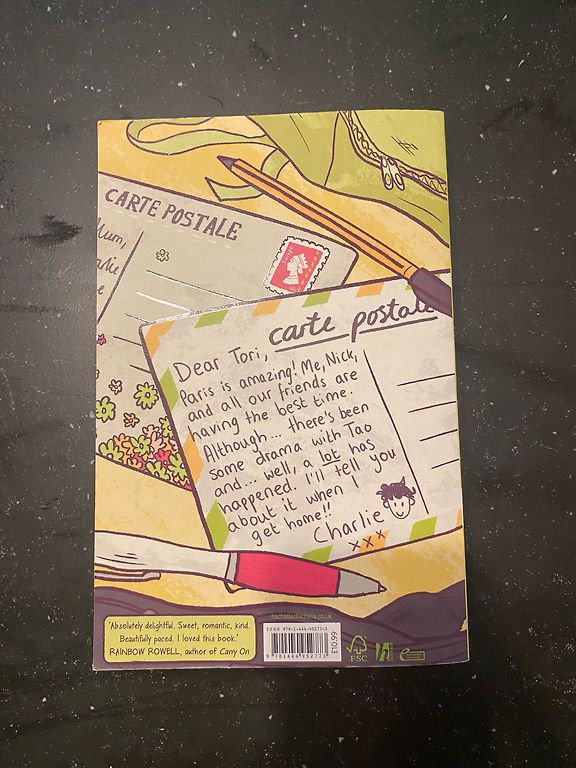 CARTE POSTALE
Mum,
carte postale
Dear Tori,
Paris is amazing! Me, Nick,
and all our friends are
having the best time.
Although... there's been
some drama with Tao
and... well, a lot has
happened. I'll tell you
about it when I
get home!!
Charlie
xxx
'Absolutely delightful. Sweet, romantic, kind.
Beautifully paced. I loved this book.'
RAINBOW ROWELL, author of Carry On
hachettechildrens.co.uk
ISBN 978-1-444-95277-3
9 781444 952773
£10.99
FSC
h
e